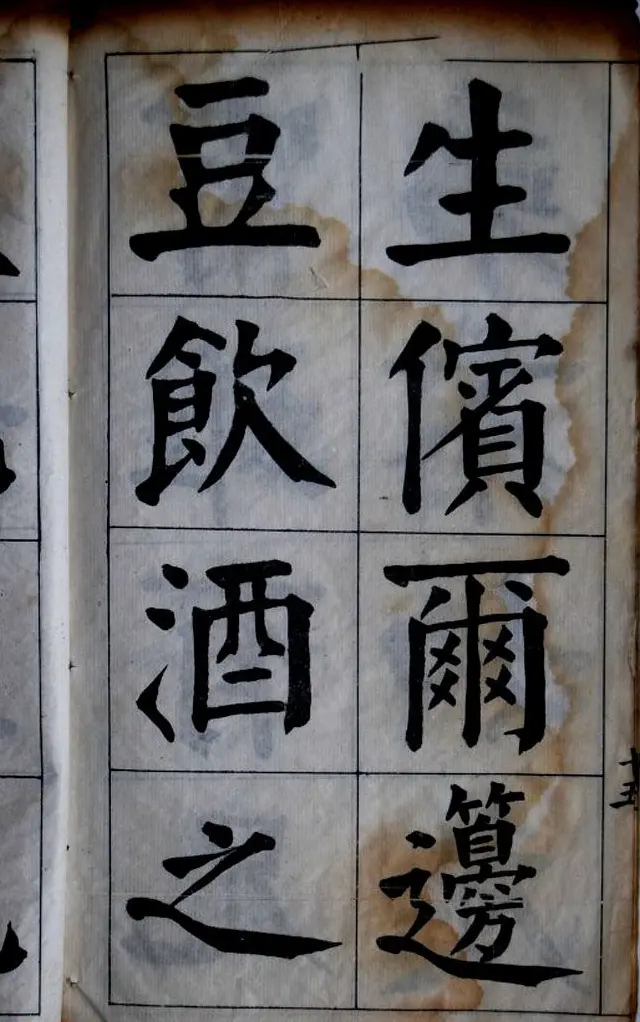 生儐爾籩
豆飲酒之
十五